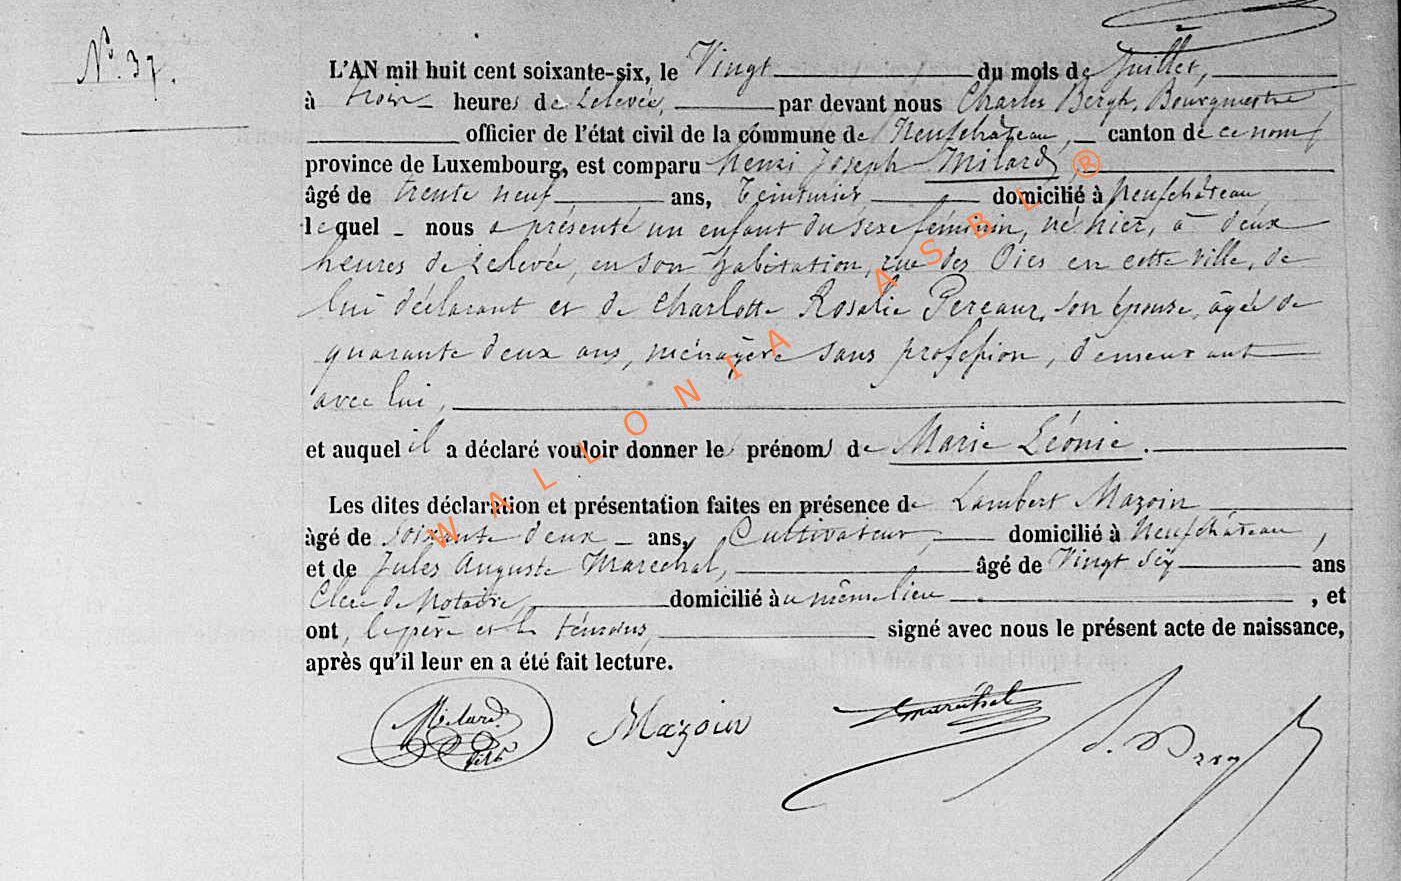 N° 37.
L'AN mil huit cent soixante-six, le Vingt du mois de Juillet,
à trois heures de relevée, par devant nous Charles Bergh, Bourgmestre
officier de l'état civil de la commune de Neufchâteau, canton de ce nom
province de Luxembourg, est comparu henri Joseph Milard,
âgé de trente neuf ans, Teinturier domicilié à Neufchâteau
lequel nous a présenté un enfant du sexe féminin, né hier, à deux
heures de relevée, en son habitation, rue des Oies en cette ville, de
lui déclarant et de Charlotte Rosalie Perçaux, son épouse, âgée de
quarante deux ans, ménagère sans profession, demeurant
avec lui,
et auquel il a déclaré vouloir donner les prénoms de Marie Léonie.
Les dites déclaration et présentation faites en présence de Lambert Mazoin
âgé de soixante deux ans, Cultivateur, domicilié à Neufchâteau,
et de Jules Auguste Maréchal, âgé de Vingt six ans
Clerc de Notaire, domicilié au même lieu , et
ont, le père et les témoins, signé avec nous le présent acte de naissance,
après qu'il leur en a été fait lecture.
Milard Mazoin Maréchal
WALLONIA ASBL ®